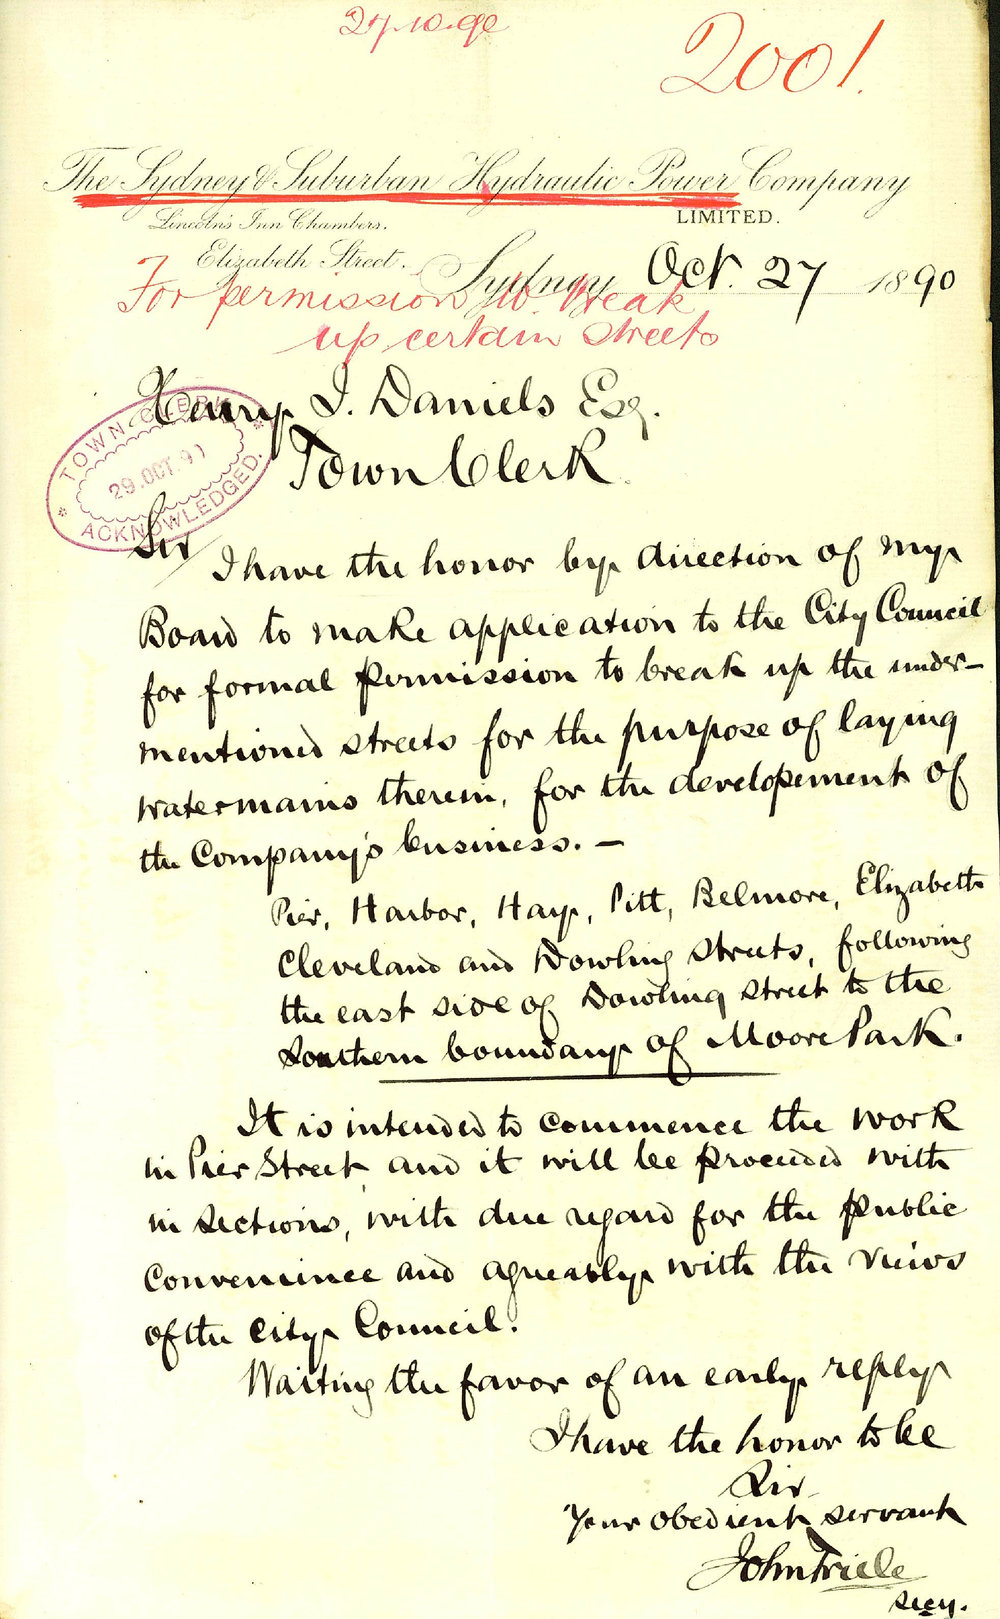 27.10.90
2001.
The Sydney & Suburban Hydraulic Power Company
LIMITED.
Lincoln's Inn Chambers.
Elizabeth Street.
Sydney Oct. 27 1890
For permission to break
up certain streets
Henry J. Daniels Esq.
Town Clerk
TOWN CLERK
29.OCT.90
ACKNOWLEDGED.
Sir
I have the honor by direction of my
Board to make application to the City Council
for formal permission to break up the under-
mentioned streets for the purpose of laying
watermains therein, for the developement of
the Company's business. —
Pier, Harbor, Hay, Pitt, Belmore, Elizabeth
Cleveland and Dowling Streets, following
the east side of Dowling Street to the
Southern boundary of Moore Park.
It is intended to commence the work
in Pier Street and it will be proceeded with
in sections, with due regard for the public
convenience and agreeably with the views
of the City Council.
Waiting the favor of an early reply
I have the honor to be
Sir
Your obedient servant
John
secy.